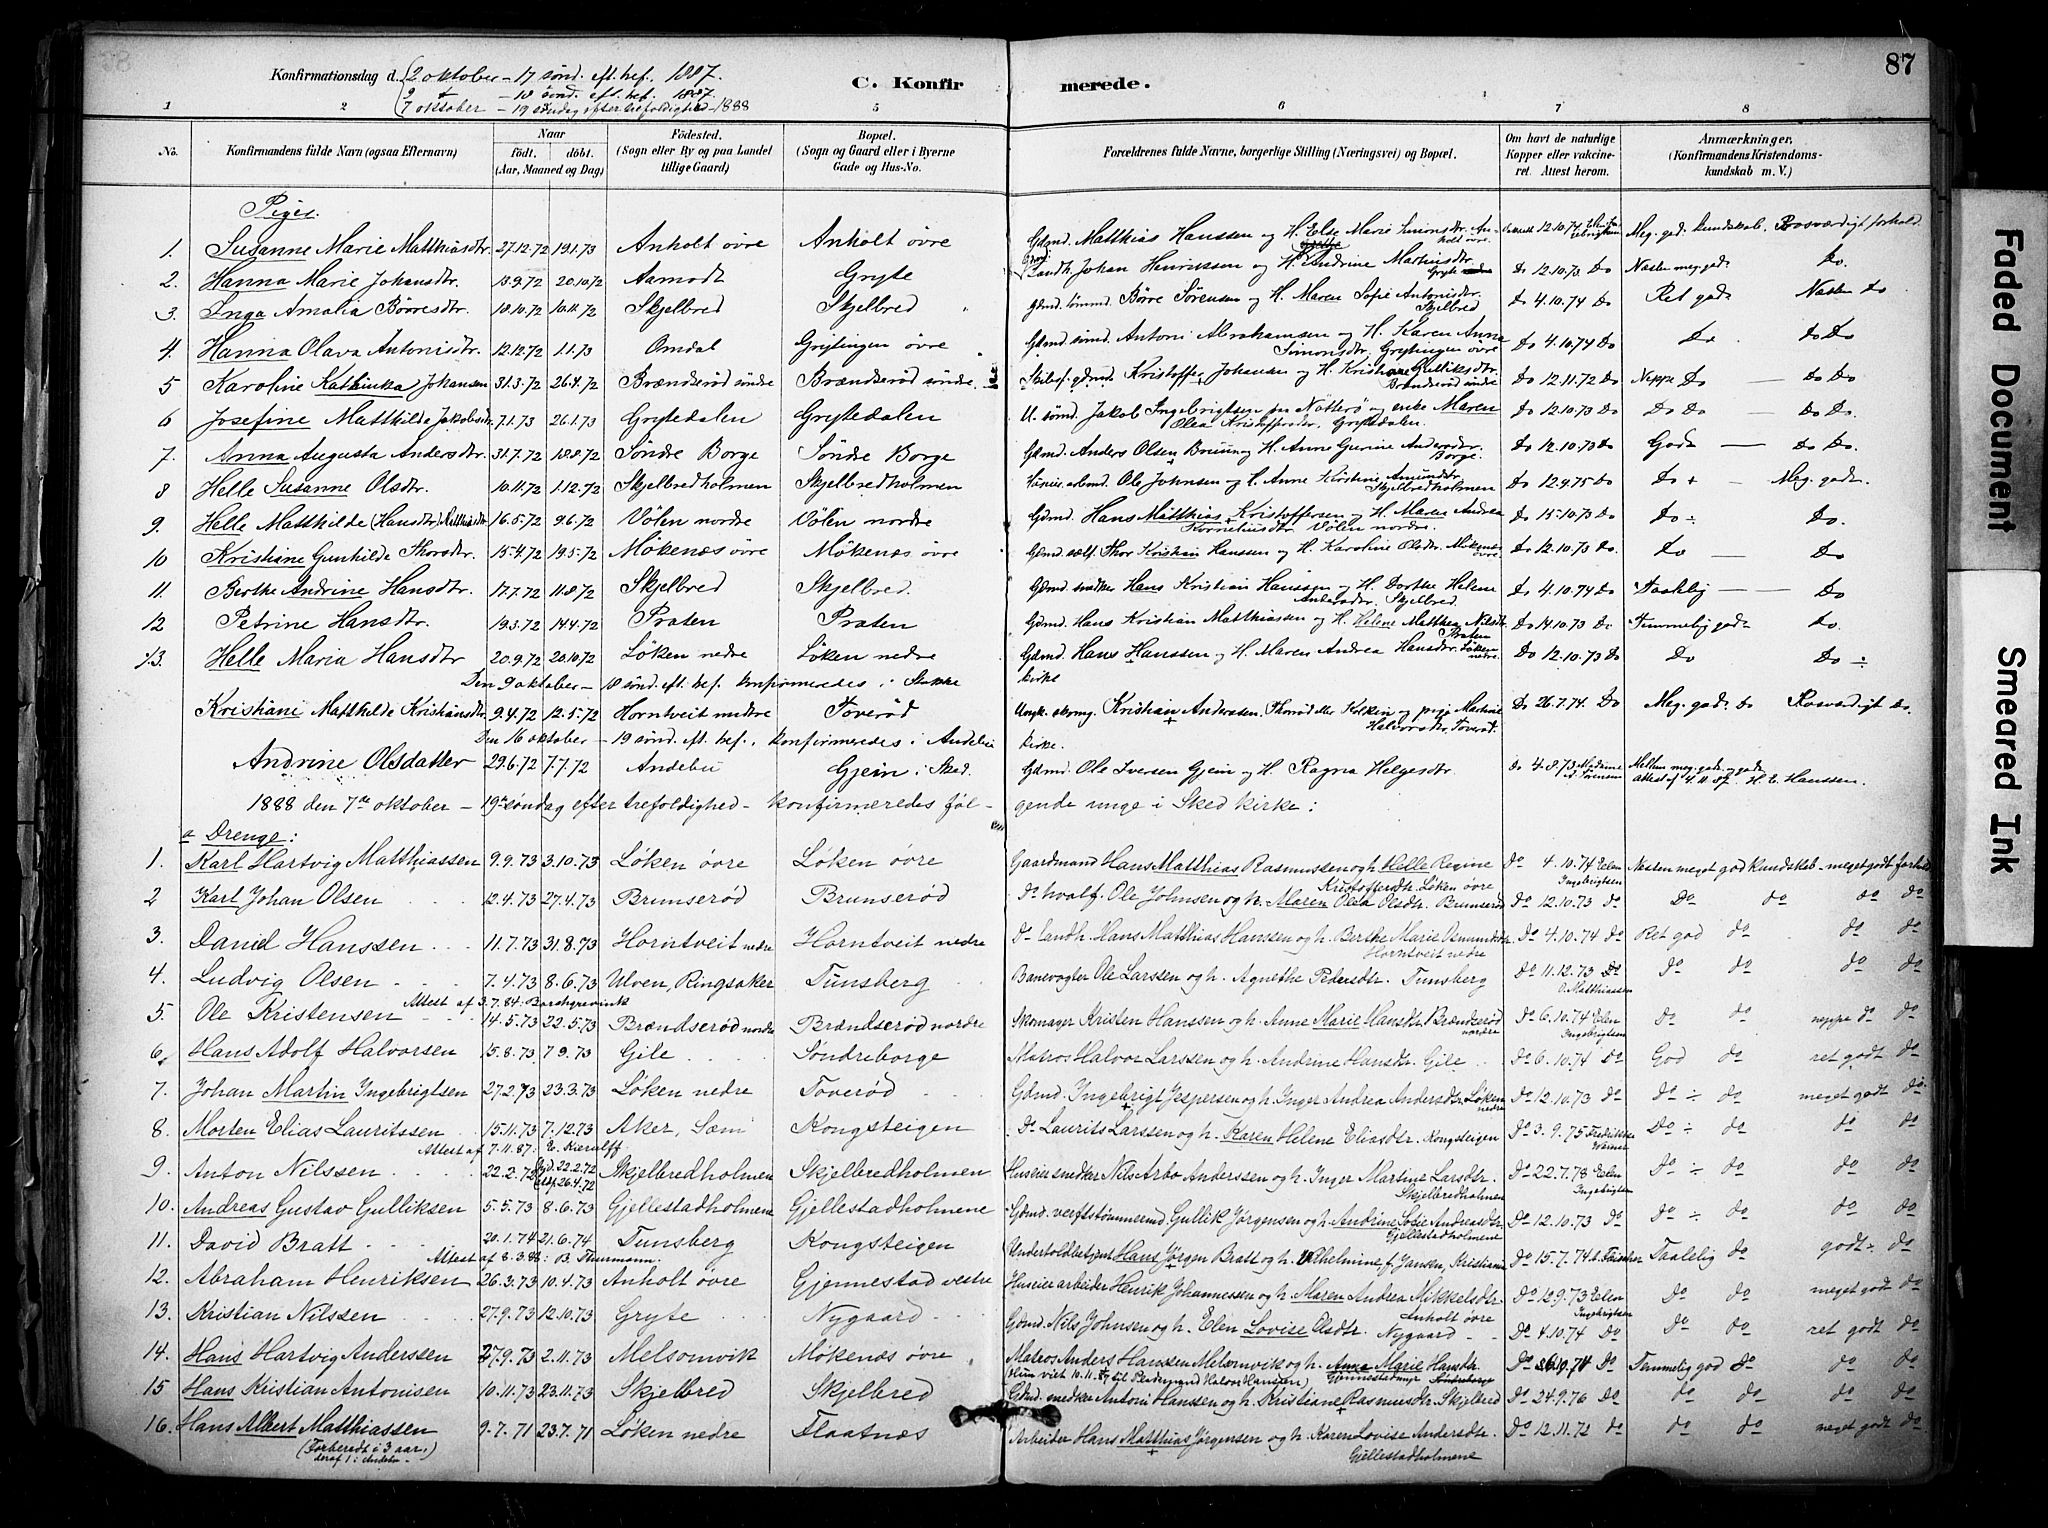 87
Konfirmationsdag d. 2 oktober - 17 sønd. eft. tref. 1887.
9 + - 18 sønd. eft. tref. 1887.
7 oktober - 19 søndag efter trefoldighed - 1888
C. Konfirmerede.
1 2 5 6 7 8
No. Konfirmandens fulde Navn (ogsaa Efternavn) Naar født. døbt. (Aar, Maaned og Dag) Fødested. (Sogn eller By og paa Landet tillige Gaard) Bopæl. (Sogn og Gaard eller i Byerne Gade og Hus-No. Forældrenes fulde Navne, borgerlige Stilling (Næringsvei) og Bopæl. Om havt de naturlige Kopper eller vakcineret. Attest herom. Anmærkninger, (Konfirmandens Kristendomskundskab m. V.)
Piger.
1. Susanne Marie Matthiasdtr. 27.12.72 19.1.73 Anholt øvre Anholt øvre Gdmd. Matthias Hanssen og H. Else Marie Simonsdtr. Anholt øvre. 12.10.74 Meg. god. kundskab. Rosværdigt forhold
2. Hanna Marie Johansdtr. 13.9.72 20.10.72 Aamodt Gryte Landh. Johan Henriksen og H. Andrine Mathisdtr. Gryte Do 12.10.73 Do Næsten meg. god. Do.
3. Inga Amalia Børresdtr. 18.10.72 10.11.72 Skjelbred Skjelbred Gdmd. tømmd. Børre Sørensen og H. Maren Sofie Antonisdtr. Skjelbred Do 4.10.74 Do Ret god. Næsten Do
4. Hanna Olava Antonisdtr. 12.12.72 1.1.73 Omdal Grytingen øvre Gdmd. sømd. Antoni Abrahamsen og H. Karen Anna Simonsdtr. Grytingen øvre Do 4.10.74 Do Do. Do Do
5 Karoline Kathinka Johansen 31.3.72 26.4.72 Brændserød søndre Brændserød søndre. Gdmd. Kristoffer Johansen og H. Kristiane Gulliksdtr. Brændserød søndre Do 12.11.72 Do Neppe Do — Do Do
6 Josefine Matthilde Jakobsdtr. 7.1.73 26.1.73 Grytedalen Grytedalen U. sømd. Jakob Ingebrigtsen paa Nøtterø og enke Maren Olea Kristoffersdtr. Grytedalen. Do 12.10.73 Do Do Do Do Do.
7. Anna Augusta Andersdtr. 31.7.72 18.8.72 Søndre Borge Søndre Borge Gdmd. Anders Olsen Bruun og H. Anne Gurine Andersdtr. Borge. Do 12.10.73 Do God. — Do Do.
8 Helle Susanne Olsdtr. 10.11.72 1.12.72 Skjelbredholmen Skjelbredholmen Huseier. arbmd. Ole Johnsen og H. Anne Kirstine Amundsdtr. Skjelbredholmen Do 12.9.75 Do Do + — Meg. godt.
9. Helle Matthilde (Hansdtr.) Matthiasdtr. 16.5.72 9.6.72 Vølen nordre Vølen nordre Gdmd. Hans Matthias Kristoffersen og H. Maren Andrea Korneliusdtr. Vølen nordre. Do 15.10.73 Do Do ÷ Do.
10 Kristiane Gunhilde Thorsdtr. 15.4.72 19.5.72 Møkenæs øvre Møkenæs øvre Gdmd. Thor Kristian Hanssen og H. Karoline Olsdtr. Møkenæs øvre. Do 12.10.73 Do Do — Do
11. Berthe Andrine Hansdtr. 17.7.72 11.8.72 Skjelbred Skjelbred. Gdmd. snedker Hans Kristian Hanssen og H. Dorthe Helene Andersdtr. Skjelbred. Do 4.10.74 Do Taalelig — Do
12 Petrine Hansdtr. 19.3.72 14.4.72 Praten Praten Gdmd. Hans Kristian Matthiassen og H. Helene Mathea Nilsdtr. Praten Do 14.10.73 Do Temmelig god. Do.
13. Helle Maria Hansdtr 20.9.72 20.10.72 Løken nedre Løken nedre Gdmd. Hans Hanssen og H. Maren Andrea Hansdtr. Løken nedre. Do 12.10.73 Do Do Do ÷
Den 9 oktober - 18 sønd. eft. tref. konfirmeredes i Stokke kirke
Kristiane Matthilde Kristiansdtr. 9.4.72 12.5.72 Horntveit nedre Toverød Ungk. skomg. Kristian Andersen. Thorød eller Kolken og pige Martine Halvorsdtr. Toverød. Do 26.7.74. Do Meg. god. Do Rosværdigt Do.
Den 16 oktober - 19 sønd. eft. tref. konfirmeredes i Andebu kirke.
Andrine Olsdatter 29.6.72 7.7.72 Andebu Gjein i Sked. Gdmd. Ole Iversen Gjein og H. Ragna Helgesdtr. Do 4.8.73 Mellem meg. god og god attest af 4.11.87. H. E. Hanssen.
1888 den 7de oktober - 19de søndag efter trefoldighed - konfirmeredes følgende unge i Sked kirke:
a Drenge:
1. Karl Hartvig Matthiassen 9.9.73 3.10.73 Løken øvre Løken øvre Gaardmand Hans Matthias Rasmussen og h. Helle Regine Kristoffersdtr. Løken øvre Do 4.10.74 Elen Ingebrigtsen Næsten meget god kundskab - meget godt forhold
2 Karl Johan Olsen 12.4.73 27.4.73 Brunserød Brunserød Do hvalf. Ole Johnsen og h. Maren Olea Olsdtr. Brunserød Do 12.10.73 do Do do do do
3. Daniel Hanssen 11.7.73 31.8.73 Horntveit nedre Horntveit nedre Do landh. Hans Matthias Hanssen og h. Berthe Marie Osmundsdtr. Horntveit nedre Do 4.10.74 do Ret god do do do
4. Ludvig Olsen 7.4.73 8.6.73 Ulven, Ringsaker Tunsberg Banevogter Ole Larssen og h. Agnethe Pedersdtr. Tunsberg Do 11.12.73 Do O. Matthiassen do do do do
Attest af 3.7.84: Borchgrevink
5. Ole Kristensen 14.5.73 22.5.73 Brændserød nordre Brændserød nordre Skomager Kristen Hanssen og h. Anne Marie Hansdtr. Brændserød nordre Do 6.10.74 Elen Ingebrigtsen do do neppe do do
6. Hans Adolf Halvorsen 15.8.73 7.9.73 Gile Søndreborge Matros Halvor Larssen og h. Andrine Hansdtr. Gile Do 6.10.74 Do God do ret godt do
7. Johan Martin Ingebrigtsen 27.2.73 23.3.73 Løken nedre Toverød Gdmd. Ingebrigt Jespersen og h. Inger Andrea Andersdtr. Løken nedre Do 12.10.73 do do ÷ do meget godt do
8. Morten Elias Lauritssen 15.11.73 7.12.73 Aker, Sem Kongsteigen Do Laurits Larssen og h. Karen Helene Eliasdtr. Kongsteigen Do 3.9.75 Do ÷ do do do
Attest af 7.11.87: E. Kierulff
9. Anton Nilssen 22.2.72 Hjd. 22.2.72 26.4.72 Skjelbredholmen Skjelbredholmen Huseier snedker Nils Arbo Anderssen og h. Inger Martine Larsdtr. Skjelbredholmen Do 22.7.78 Elen Ingebrigtsen Do ÷ do do do
10. Andreas Gustav Gulliksen 5.5.73 8.6.73 Gjellestadholmene Gjellestadholmene Gdmd. verftstømmermd. Gullik Jørgensen og h. Andrine Sofie Andreasdtr. Gjellestadholmene Do 12.10.73 do do ÷ do do do
11. David Bratt 20.1.74 21.6.74 Tunsberg Kongsteigen Underholdbetjent Hans Jørgen Bratt og h. Vilhelmine f. Jansen, Kristiania Do 15.7.74 Taalelig do godt ÷ do
Attest af 8.3.88: B. Thurmann.
12. Abraham Henriksen 26.3.73 10.4.73 Anholt øvre Gjennestad vestre Huseier arbeider Henrik Johannessen og h. Maren Andrea Mikkelsdtr. Anholt øvre Do 12.9.73 Elen Ingebrigtsen do do meget godt do
13. Kristian Nilssen 27.9.73 12.10.73 Gryte Nygaard Gdmd. Nils Johnsen og h. Elen Lovise Olsdtr. Nygaard Do 4.10.74 do do do ret godt do
14. Hans Hartvig Anderssen 27.9.73 2.11.73 Melsomvik Møkenæs øvre Matros Anders Hanssen Melsomvik og h. Anna Marie Hansdtr. Do 6.10.74 Do Temmelig god do do do
15 Hans Kristian Antonisen 10.11.73 23.11.73 Skjelbred Skjelbred Gdmd. snedker Antoni Hanssen og h. Kristiane Rasmusdtr. Skjelbred Do 24.9.76 Do do do do do
16. Hans Albert Matthiassen 9.7.71 23.7.71 Løken nedre Flaatnæs Arbeider Hans Matthias Jørgensen og h. Karen Lovise Andersdtr. Gjellestadholmene Do 12.11.72 do do do meget godt do
(Forberedt i 3 aar, deraf 1 i Andebu -
Faded Document
Smeared Ink